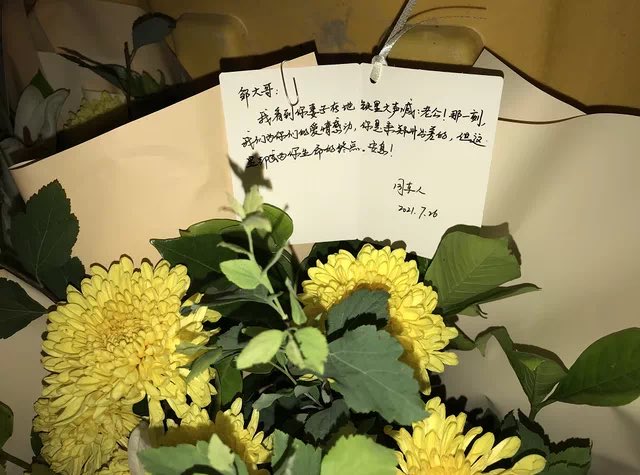 邹大哥：
我看到你妻子在地铁里大声喊：老公！那一刻
我们为你们的爱情感动，你是来郑州出差的，但这
里却成为你生命的终点。安息！
同事人
2021.7.26